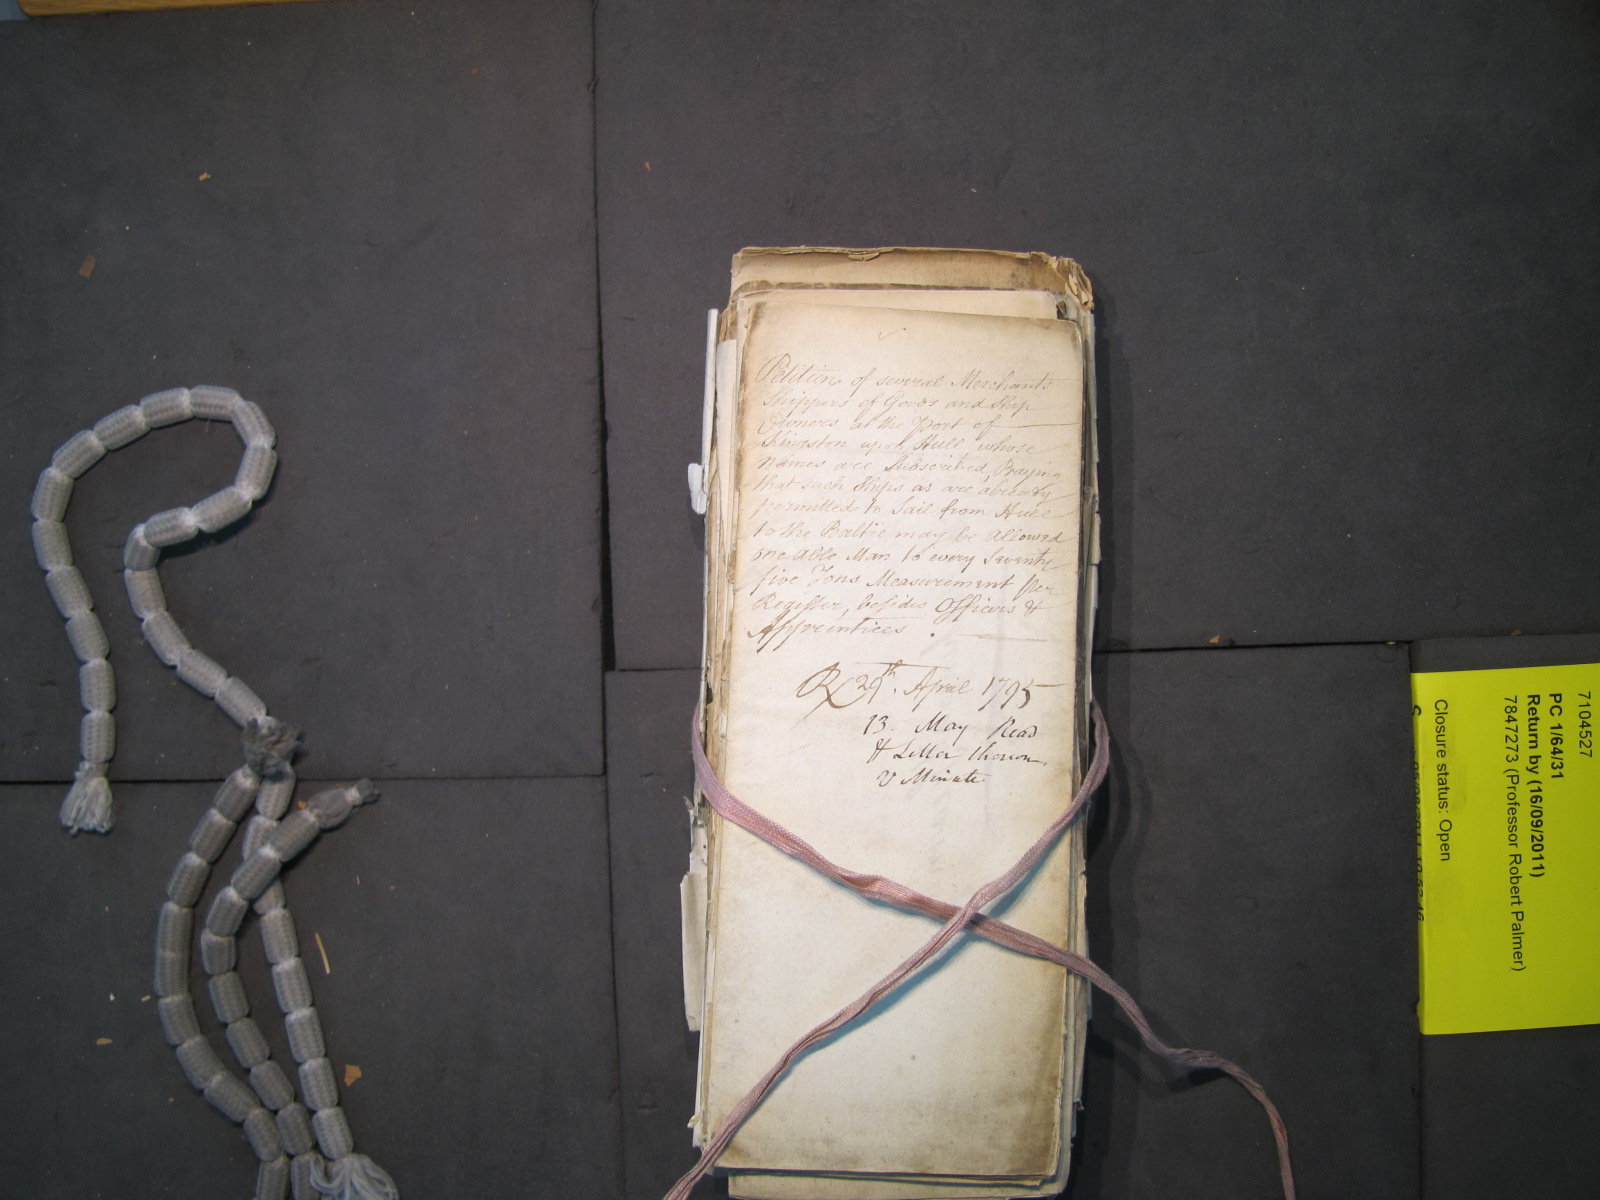 Petition of several Merchants
Shippers of Goods and Ship
Owners at the Port of
Kingston upon Hull, whose
Names are Subscribed, Praying
that such Ships as are already
permitted to Sail from Hull
to the Baltic may be Allowed
one Able Man to every Seventy
five Tons Measurement per
Register, besides Officers &
Apprentices.
Rx 29th. April 1795
13. May Read
& Letter thereon.
V Minute
7104527
PC 1/64/31
Return by (16/09/2011)
7847273 (Professor Robert Palmer)
Closure status: Open